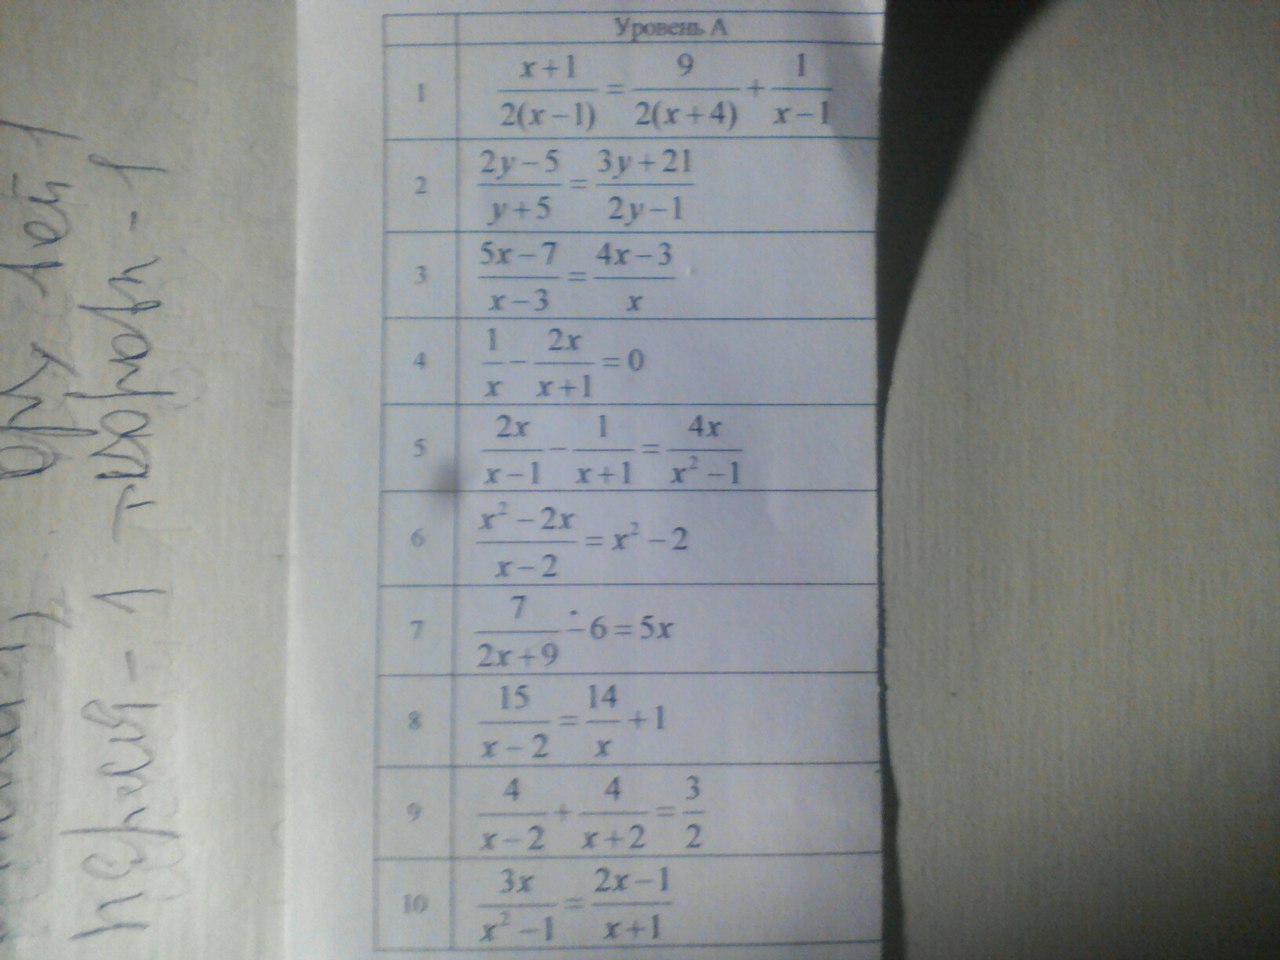 Уровень А
1 \frac{x+1}{2(x-1)} = \frac{9}{2(x+4)} + \frac{1}{x-1}
2 \frac{2y-5}{y+5} = \frac{3y+21}{2y-1}
3 \frac{5x-7}{x-3} = \frac{4x-3}{x}
4 \frac{1}{x} - \frac{2x}{x+1} = 0
5 \frac{2x}{x-1} - \frac{1}{x+1} = \frac{4x}{x^2-1}
6 \frac{x^2-2x}{x-2} = x^2-2
7 \frac{7}{2x+9} - 6 = 5x
8 \frac{15}{x-2} = \frac{14}{x} + 1
9 \frac{4}{x-2} + \frac{4}{x+2} = \frac{3}{2}
10 \frac{3x}{x^2-1} = \frac{2x-1}{x+1}